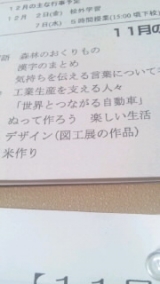 12月の主な行事予定
12月2日(金) 校外学習
7日(木) 5時間授業(15:00頃下校)
11月の
森林のおくりもの
漢字のまとめ
気持ちを伝える言葉について
工業生産を支える人々
「世界とつながる自動車」
ぬって作ろう 楽しい生活
デザイン(図工展の作品)
米作り